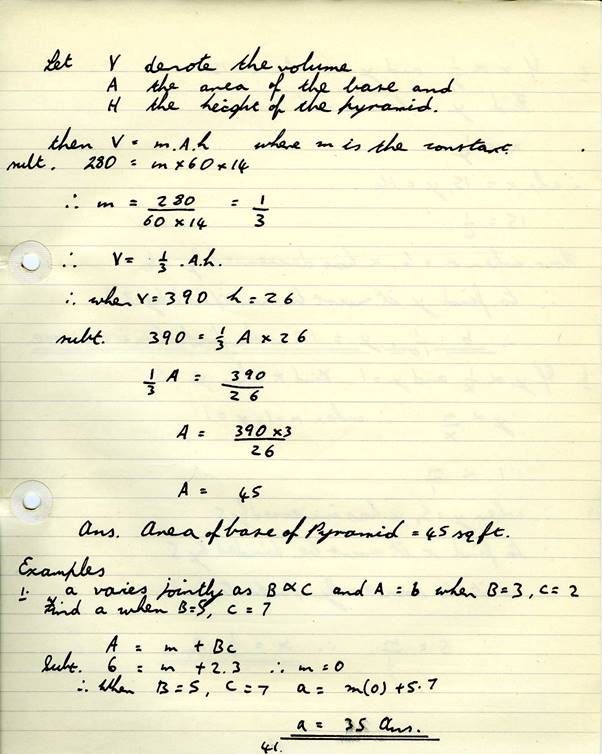 Let V denote the volume
A the area of the base and
H the height of the pyramid.
then V = m.A.h where m is the constant.
subt. 280 = m x 60 x 14
∴ m = 280 / 60 x 14 = 1/3
∴ V = 1/3 .A.h.
∴ when V = 390 h = 26
subt. 390 = 1/3 A x 26
1/3 A = 390 / 26
A = 390 x 3 / 26
A = 45
Ans. Area of base of Pyramid = 45 sq ft.
Examples
1. a varies jointly as B ∝ C and A = 6 when B = 3, C = 2
Find a when B = 5, C = 7
A = m + Bc
Subt. 6 = m + 2.3 ∴ m = 0
∴ When B = 5, C = 7 a = m(0) + 5.7
a = 35 Ans.
41.